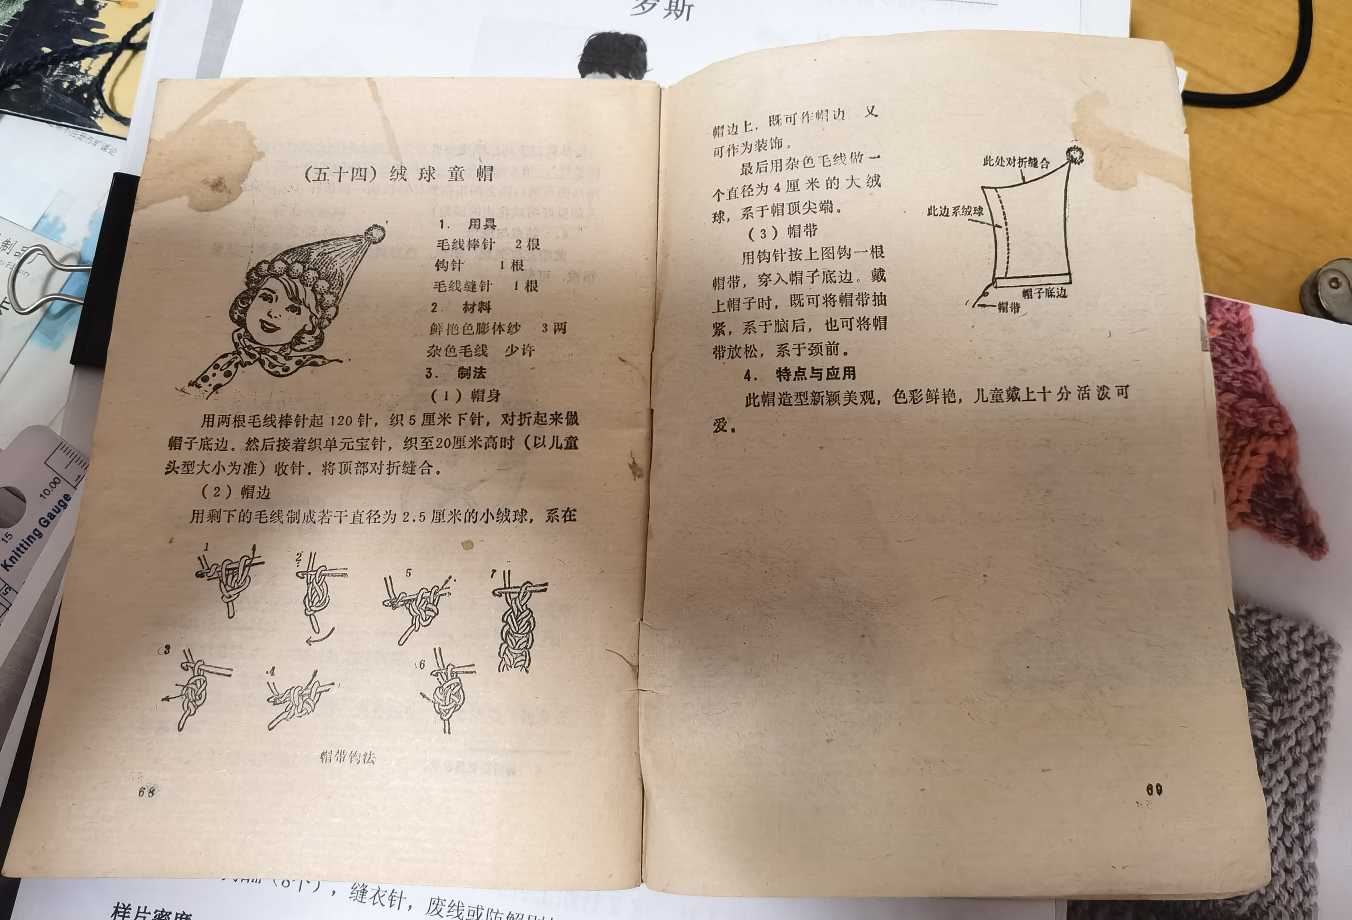 罗斯
(五十四)绒球童帽
1. 用具
毛线棒针 2根
钩针 1根
毛线缝针 1根
2. 材料
鲜艳色膨体纱 3两
杂色毛线 少许
3. 制法
(1)帽身
用两根毛线棒针起120针，织5厘米下针，对折起来做
帽子底边。然后接着织单元宝针，织至20厘米高时(以儿童
头型大小为准)收针。将顶部对折缝合。
(2)帽边
用剩下的毛线制成若干直径为2.5厘米的小绒球，系在
1
2
5
7
3
4
6
帽带钩法
68
帽边上，既可作帽边 又
可作为装饰。
最后用杂色毛线做一
个直径为4厘米的大绒
球，系于帽顶尖端。
(3)帽带
用钩针按上图钩一根
帽带，穿入帽子底边。戴
上帽子时，既可将帽带抽
紧，系于脑后，也可将帽
带放松，系于颈前。
4. 特点与应用
此帽造型新颖美观，色彩鲜艳，儿童戴上十分活泼可
爱。
此处对折缝合
此边系绒球
帽子底边
帽带
69
制品
15
10.00
Knitting Gauge
，缝衣针，废线或防解别
样片密度